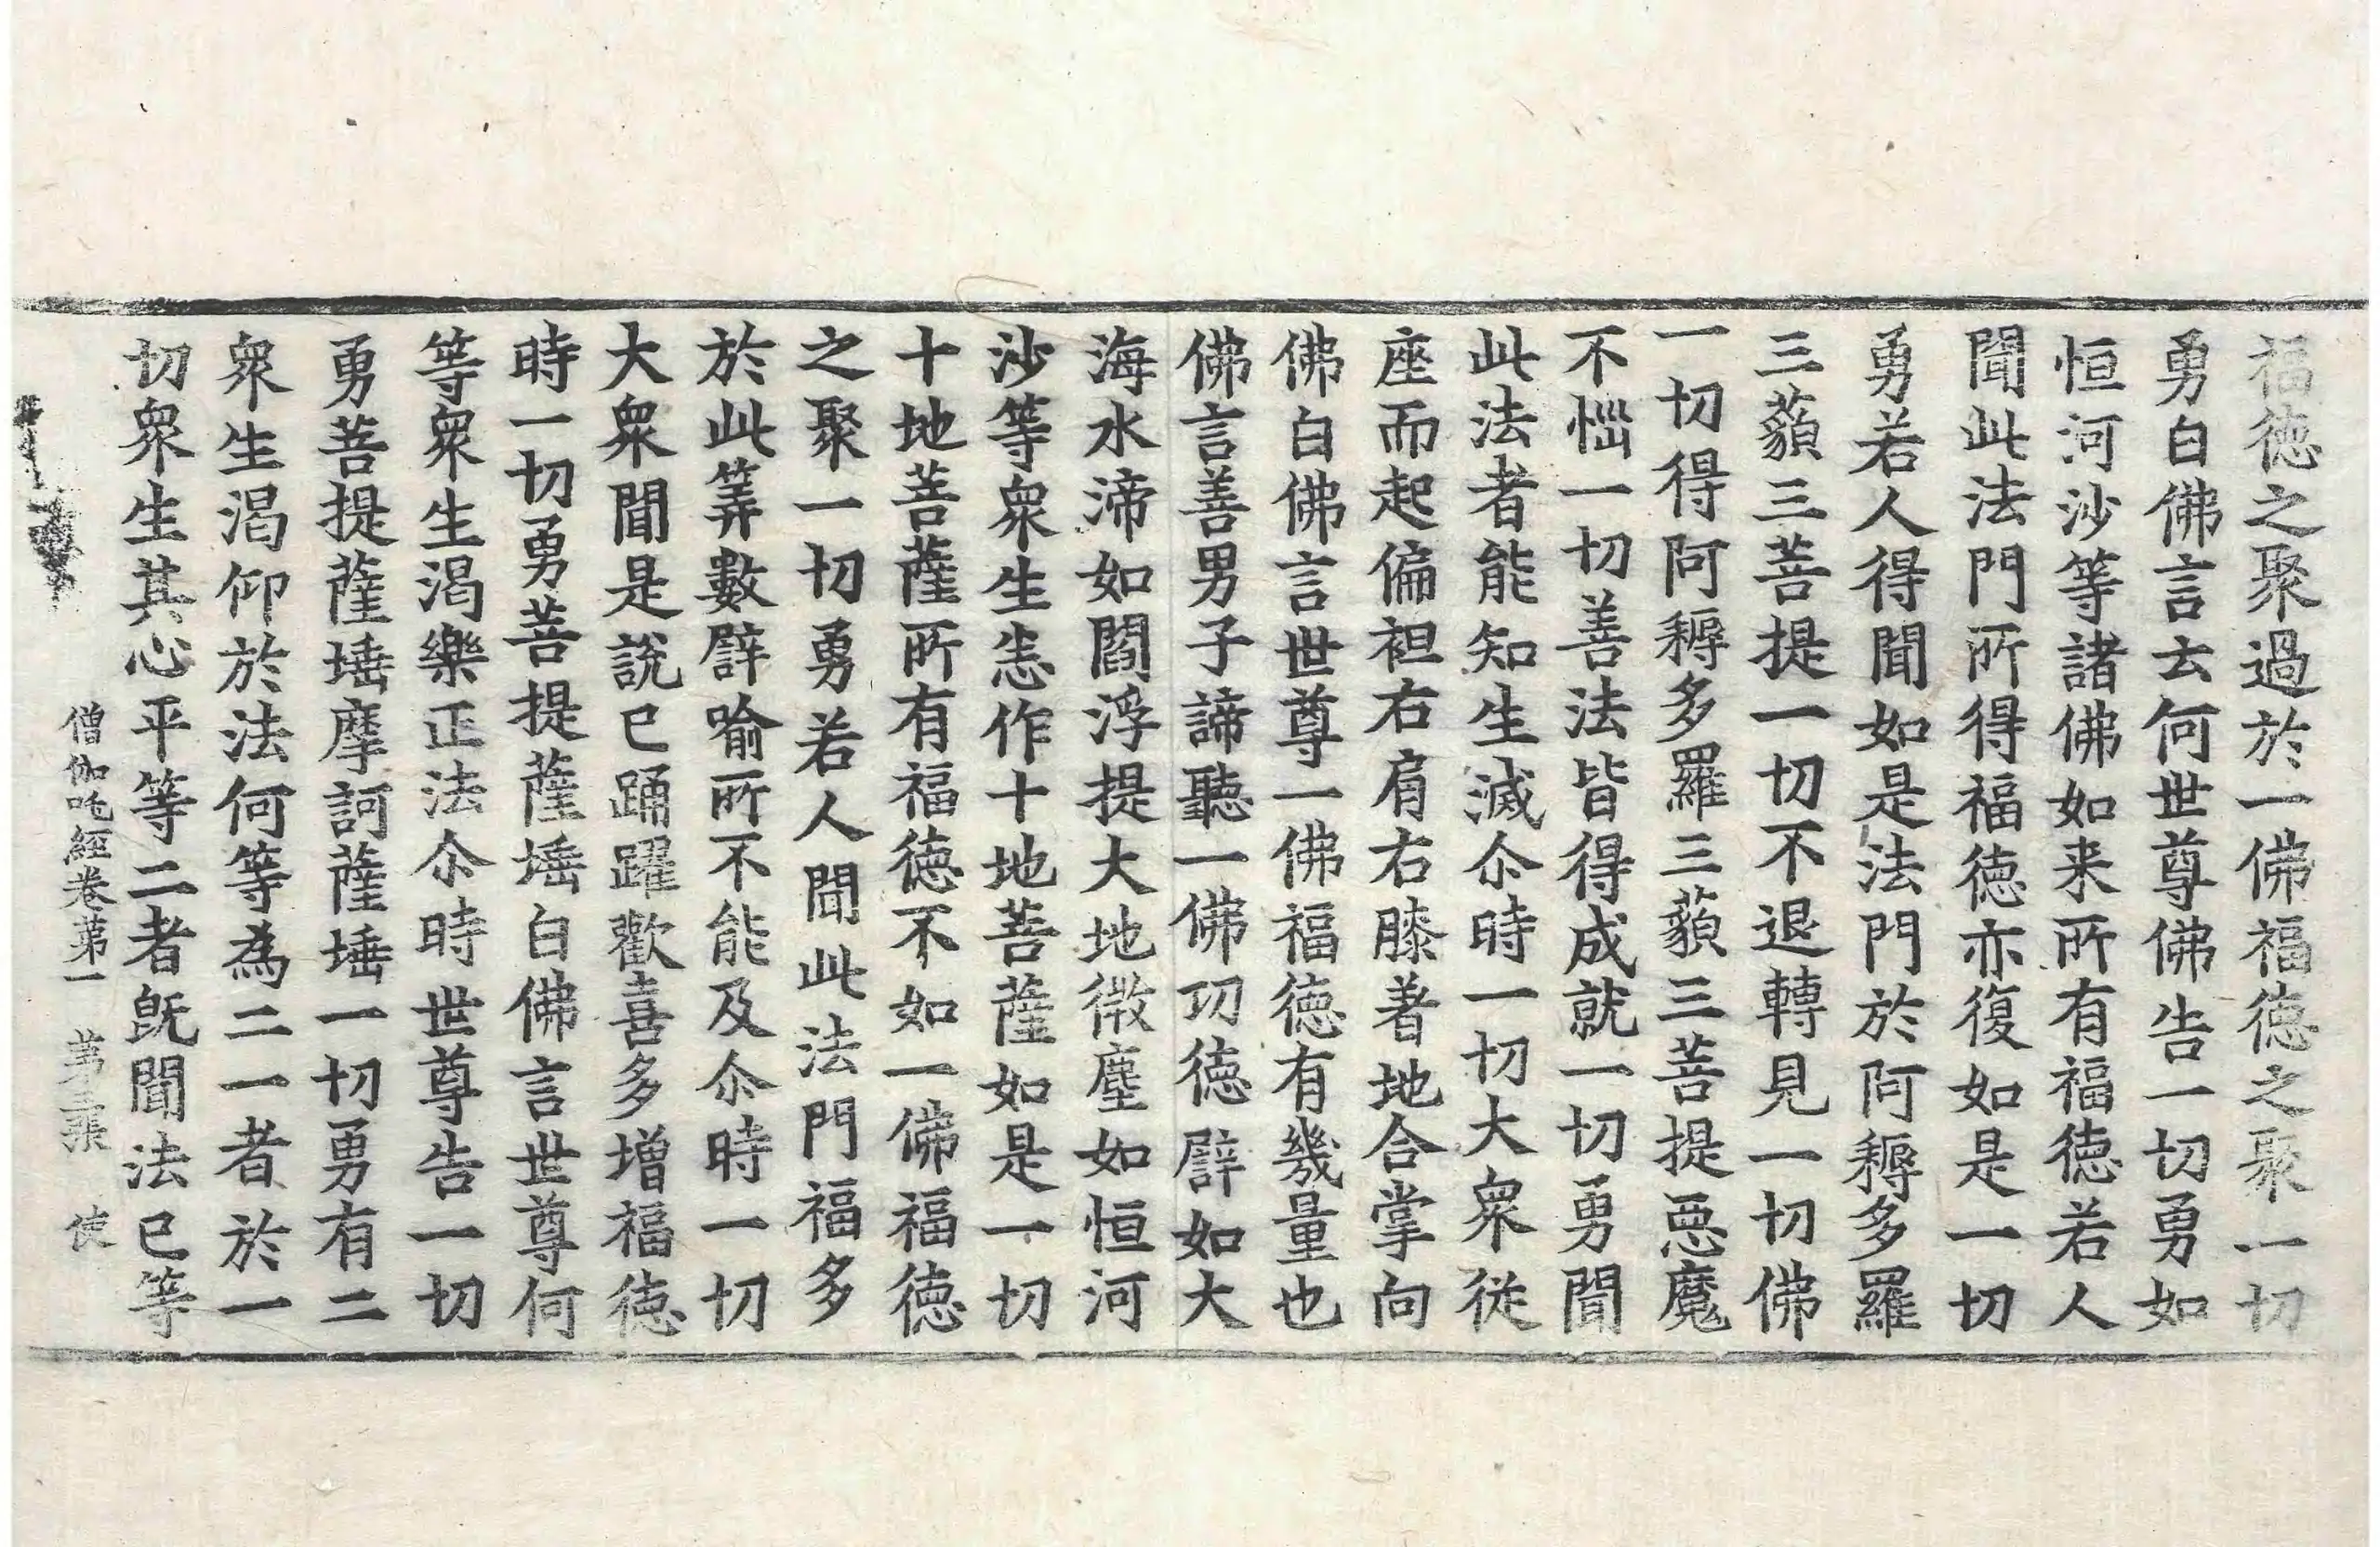 福德之聚過於一佛福德之聚一切
勇白佛言云何世尊佛告一切勇如
恒河沙等諸佛如来所有福德若人
聞此法門所得福德亦復如是一切
勇若人得聞如是法門於阿耨多羅
三藐三菩提一切不退轉見一切佛
一切得阿耨多羅三藐三菩提惡魔
不惱一切善法皆得成就一切勇聞
此法者能知生滅尒時一切大衆從
座而起偏袒右肩右膝著地合掌向
佛白佛言世尊一佛福德有幾量也
佛言善男子諦聽一佛功德譬如大
海水渧如閻浮提大地微塵如恒河
沙等衆生悉作十地菩薩如是一切
十地菩薩所有福德不如一佛福德
之聚一切勇若人聞此法門福多
於此筭數譬喻所不能及尒時一切
大衆聞是說已踊躍歡喜多增福德
時一切勇菩提薩埵白佛言世尊何
等衆生渴樂正法尒時世尊告一切
勇菩提薩埵摩訶薩埵一切勇有二
衆生渴仰於法何等為二一者於一
切衆生其心平等二者旣聞法已等
僧伽吒經卷第一 第三張 使